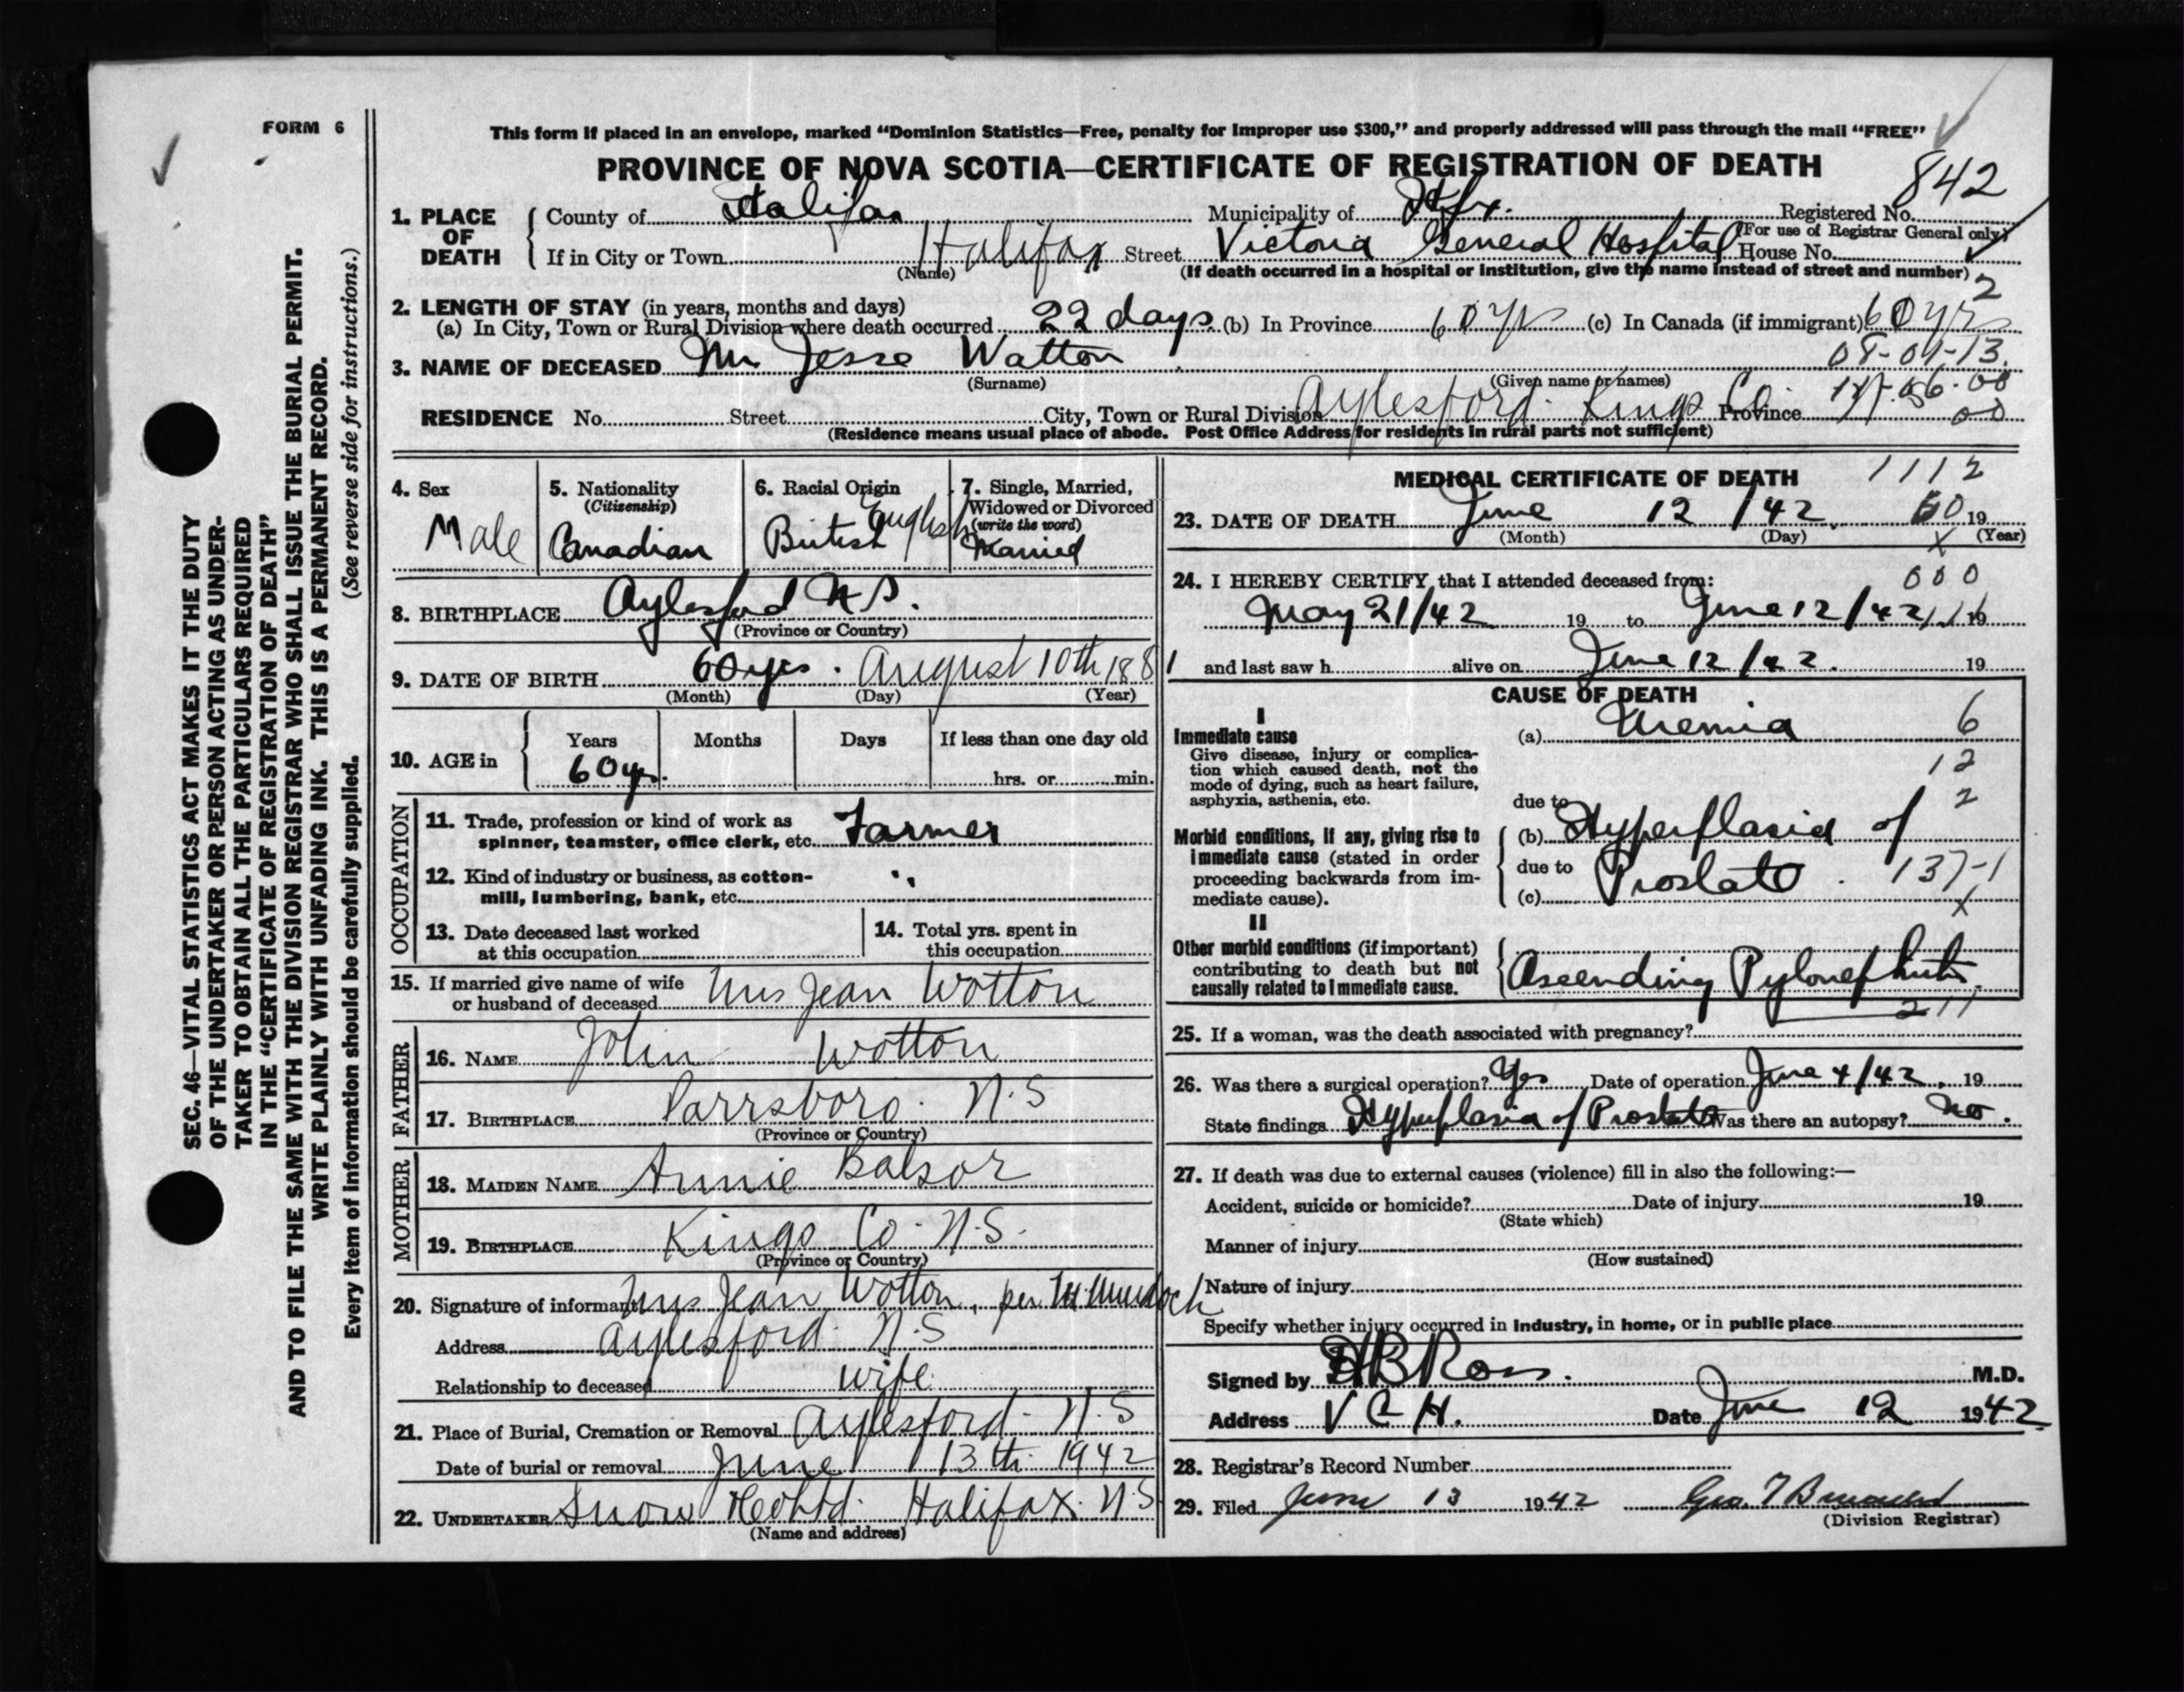 FORM 6
This form if placed in an envelope, marked “Dominion Statistics—Free, penalty for improper use $300,” and properly addressed will pass through the mail “FREE”
PROVINCE OF NOVA SCOTIA—CERTIFICATE OF REGISTRATION OF DEATH
842
1. PLACE OF DEATH { County of Halifax Municipality of Hfx. Registered No.
(For use of Registrar General only)
If in City or Town Halifax Street Victoria General Hospital House No.
(Name) (If death occurred in a hospital or institution, give the name instead of street and number)
2
2. LENGTH OF STAY (in years, months and days)
(a) In City, Town or Rural Division where death occurred 22 days. (b) In Province 60 yrs (c) In Canada (if immigrant) 60 yrs
3. NAME OF DECEASED Mr Jesse Watton
(Surname) (Given name or names)
RESIDENCE No. Street City, Town or Rural Division Aylesford. Kings Co. Province
00
(Residence means usual place of abode. Post Office Address for residents in rural parts not sufficient)
4. Sex
Male
5. Nationality
(Citizenship)
Canadian
6. Racial Origin
English
British
7. Single, Married,
Widowed or Divorced
(write the word)
Married
8. BIRTHPLACE Aylesford N.S.
(Province or Country)
9. DATE OF BIRTH 60 yrs. August 10th 1881
(Month) (Day) (Year)
10. AGE in { Years Months Days If less than one day old
60 yrs. hrs. or min.
OCCUPATION
11. Trade, profession or kind of work as
spinner, teamster, office clerk, etc. Farmer
12. Kind of industry or business, as cotton-
mill, lumbering, bank, etc. "
13. Date deceased last worked
at this occupation
14. Total yrs. spent in
this occupation
15. If married give name of wife
or husband of deceased Mrs Jean Wotton
FATHER
16. NAME John Wotton
17. BIRTHPLACE Parrsboro. N.S
(Province or Country)
MOTHER
18. MAIDEN NAME Annie Balsor
19. BIRTHPLACE Kings Co. N.S.
(Province or Country)
20. Signature of informant Mrs Jean Wotton, per M Murdoch
Address Aylesford. N.S
Relationship to deceased wife.
21. Place of Burial, Cremation or Removal Aylesford. N.S
Date of burial or removal June 13th 1942
22. UNDERTAKER Snow & Co Ltd. Halifax. N.S
(Name and address)
MEDICAL CERTIFICATE OF DEATH 1112
23. DATE OF DEATH June 12 /42. 60 19
(Month) (Day) (Year)
X
24. I HEREBY CERTIFY that I attended deceased from:
000
May 21/42 19 to June 12/42 19
and last saw h alive on June 12/42. 19
CAUSE OF DEATH
I
Immediate cause
Give disease, injury or complica-
tion which caused death, not the
mode of dying, such as heart failure,
asphyxia, asthenia, etc.
(a) Uremia 6
12
due to 2
Morbid conditions, if any, giving rise to
immediate cause (stated in order
proceeding backwards from im-
mediate cause).
(b) Hyperplasia of
due to Prostate. 137-1
(c) X
II
Other morbid conditions (if important)
contributing to death but not
causally related to immediate cause.
Ascending Pylonephritis
211
25. If a woman, was the death associated with pregnancy?
26. Was there a surgical operation? Yes Date of operation June 4/42. 19
State findings Hyperplasia of Prostate Was there an autopsy? No.
27. If death was due to external causes (violence) fill in also the following:—
Accident, suicide or homicide? Date of injury 19
(State which)
Manner of injury
(How sustained)
Nature of injury
Specify whether injury occurred in industry, in home, or in public place
Signed by HB Ross. M.D.
Address V G H. Date June 12 1942
28. Registrar's Record Number
29. Filed June 13 1942 Geo. T
(Division Registrar)
SEC. 46—VITAL STATISTICS ACT MAKES IT THE DUTY
OF THE UNDERTAKER OR PERSON ACTING AS UNDER-
TAKER TO OBTAIN ALL THE PARTICULARS REQUIRED
IN THE “CERTIFICATE OF REGISTRATION OF DEATH”
AND TO FILE THE SAME WITH THE DIVISION REGISTRAR WHO SHALL ISSUE THE BURIAL PERMIT.
WRITE PLAINLY WITH UNFADING INK. THIS IS A PERMANENT RECORD.
Every item of information should be carefully supplied. (See reverse side for instructions.)